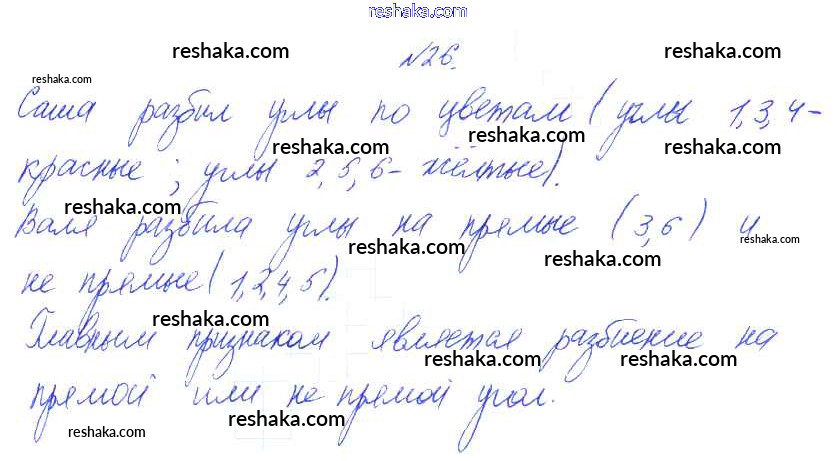 reshaka.com
№26.
reshaka.com reshaka.com
reshaka.com
Саша разбил углы по цветам (углы 1,3,4-
reshaka.com reshaka.com
красные; углы 2,5,6- жёлтые).
reshaka.com
Валя разбила углы на прямые (3,6) и
reshaka.com reshaka.com reshaka.com
не прямые (1,2,4,5).
reshaka.com
Главным признаком является разбиение на
reshaka.com reshaka.com
прямой или не прямой угол.
reshaka.com reshaka.com reshaka.com